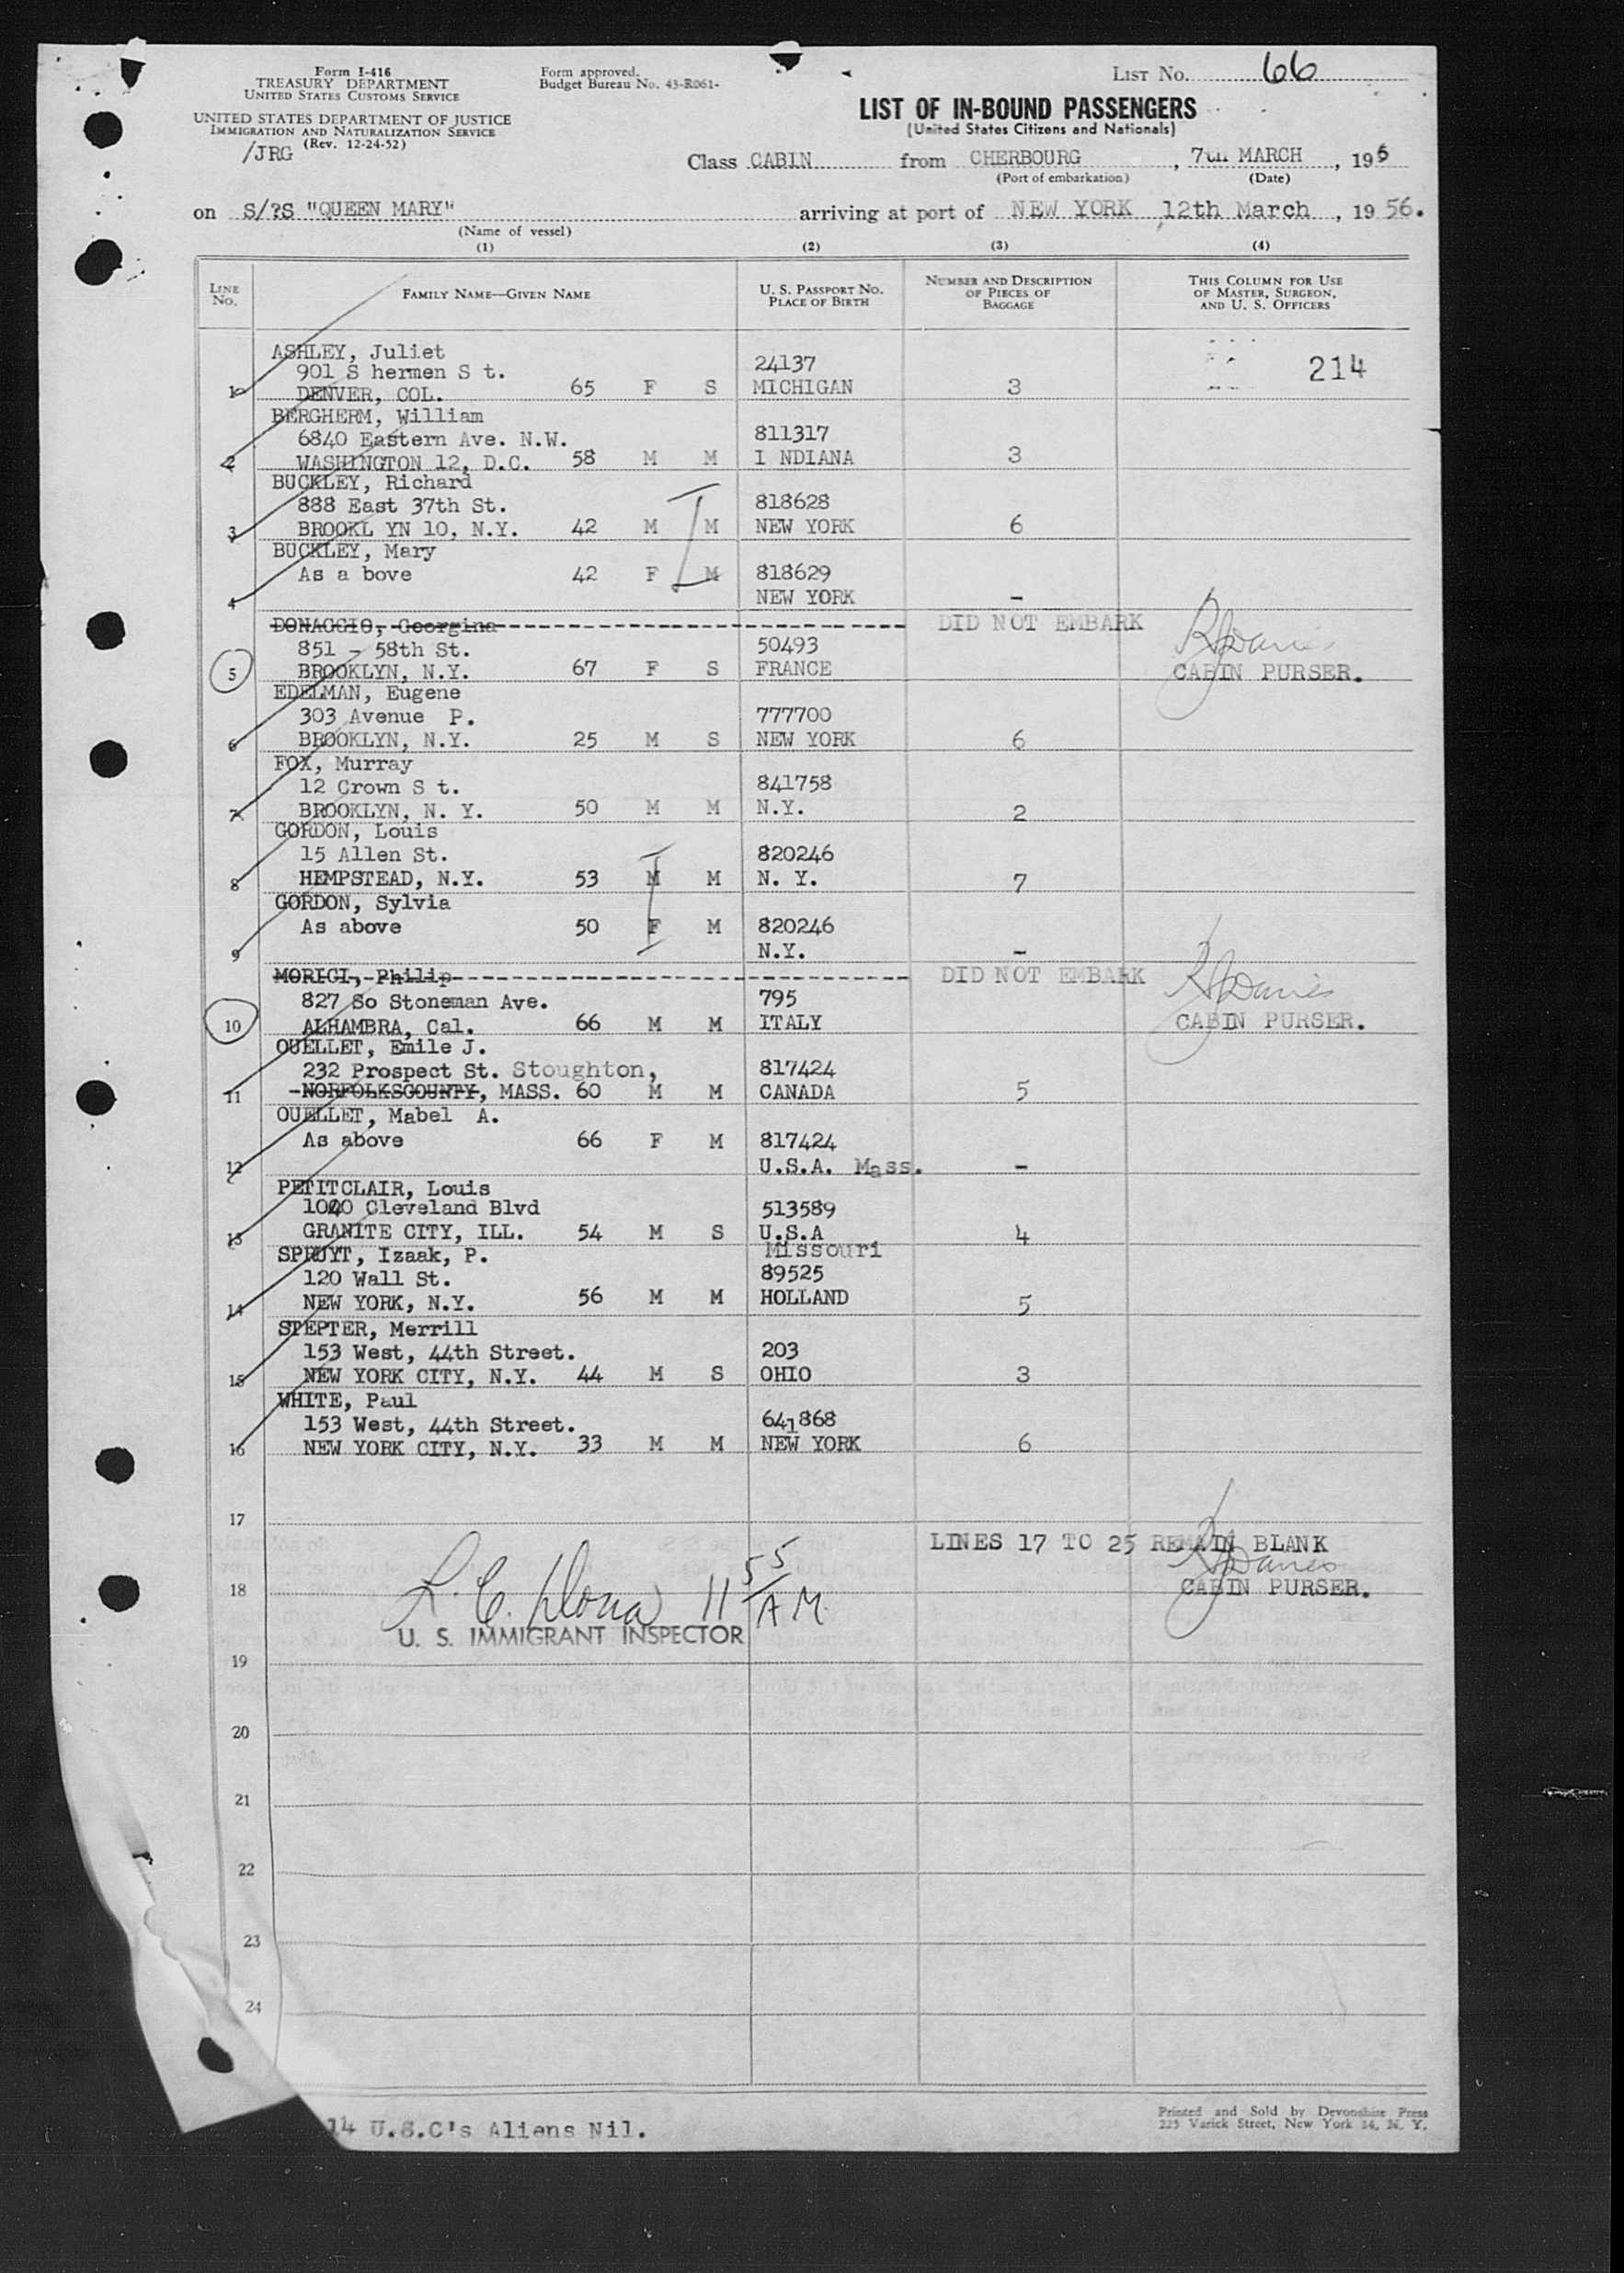 Form I-416
TREASURY DEPARTMENT
UNITED STATES CUSTOMS SERVICE
UNITED STATES DEPARTMENT OF JUSTICE
IMMIGRATION AND NATURALIZATION SERVICE
(Rev. 12-24-52)
/JRG
Form approved.
Budget Bureau No. 43-R061-
LIST No. 66
LIST OF IN-BOUND PASSENGERS
(United States Citizens and Nationals)
Class CABIN from CHERBOURG, 7th MARCH, 196
(Port of embarkation) (Date)
on S/?S "QUEEN MARY" arriving at port of NEW YORK 12th March, 1956.
(Name of vessel)
(1) (2) (3) (4)
LINE No. FAMILY NAME—GIVEN NAME U. S. PASSPORT NO. PLACE OF BIRTH NUMBER AND DESCRIPTION OF PIECES OF BAGGAGE THIS COLUMN FOR USE OF MASTER, SURGEON, AND U. S. OFFICERS
ASHLEY, Juliet
901 S hermen S t. 24137 214
1 DENVER, COL. 65 F S MICHIGAN 3
BERGHERM, William
6840 Eastern Ave. N.W. 811317
2 WASHINGTON 12, D.C. 58 M M I NDIANA 3
BUCKLEY, Richard
888 East 37th St. 818628
3 BROOKL YN 10, N.Y. 42 M M NEW YORK 6
BUCKLEY, Mary
As a bove 42 F M 818629
4 NEW YORK -
DONAGGIO, Georgina DID NOT EMBARK
851 - 58th St. 50493 RJDavies
5 BROOKLYN, N.Y. 67 F S FRANCE CABIN PURSER.
EDELMAN, Eugene
303 Avenue P. 777700
6 BROOKLYN, N.Y. 25 M S NEW YORK 6
FOX, Murray
12 Crown S t. 841758
7 BROOKLYN, N. Y. 50 M M N.Y. 2
GORDON, Louis
15 Allen St. 820246
8 HEMPSTEAD, N.Y. 53 M M N. Y. 7
GORDON, Sylvia
As above 50 F M 820246
9 N.Y. -
MORICI, Philip DID NOT EMBARK
827 So Stoneman Ave. 795 RJDavies
10 ALHAMBRA, Cal. 66 M M ITALY CABIN PURSER.
OUELLET, Emile J.
232 Prospect St. Stoughton, 817424
11 -NORFOLKSCOUNTY, MASS. 60 M M CANADA 5
OUELLET, Mabel A.
As above 66 F M 817424
12 U.S.A. Mass. -
PETITCLAIR, Louis
1040 Cleveland Blvd 513589
13 GRANITE CITY, ILL. 54 M S U.S.A 4
SPRUYT, Izaak, P. Missouri
120 Wall St. 89525
14 NEW YORK, N.Y. 56 M M HOLLAND 5
STEPTER, Merrill
153 West, 44th Street. 203
15 NEW YORK CITY, N.Y. 44 M S OHIO 3
WHITE, Paul
153 West, 44th Street. 641868
16 NEW YORK CITY, N.Y. 33 M M NEW YORK 6
17
LINES 17 TO 25 REMAIN BLANK
RJDavies
18 CABIN PURSER.
L. C. 11 55/AM
U. S. IMMIGRANT INSPECTOR
19
20
21
22
23
24
14 U.S.C's Aliens Nil.
Printed and Sold by Devonshire Press
225 Varick Street, New York 14, N. Y.